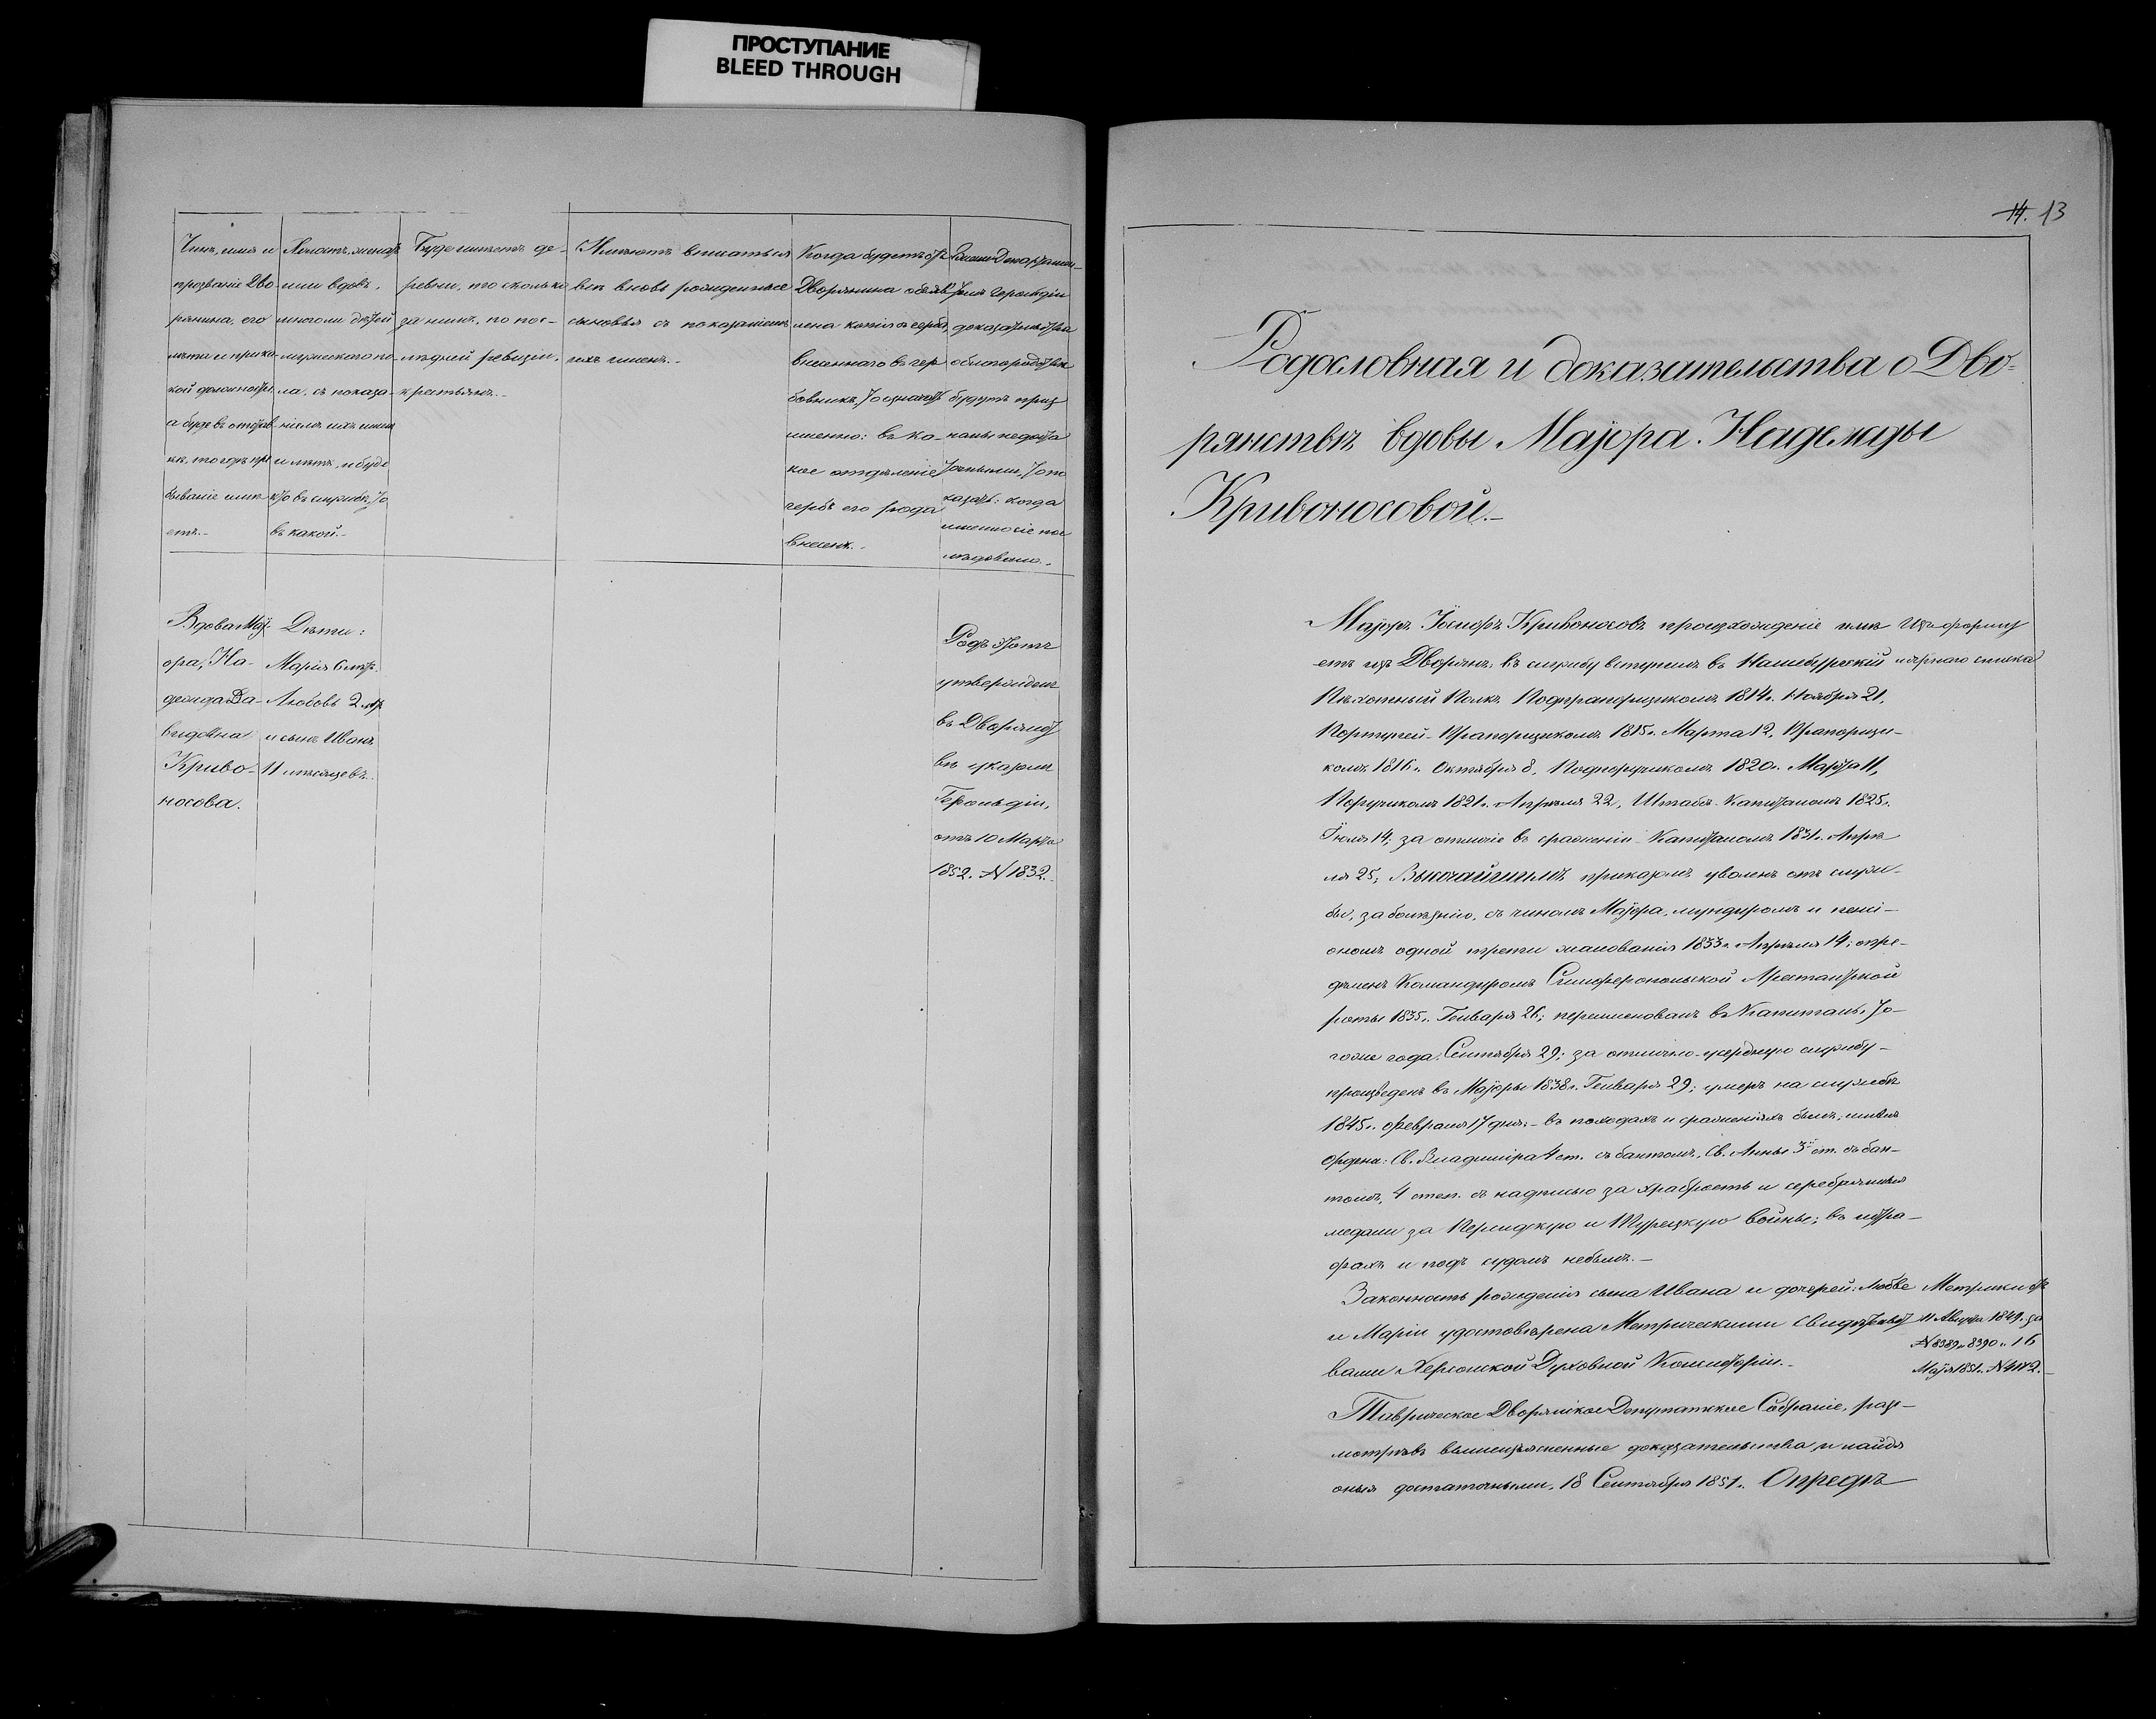 ПРОСТУПАНИЕ
BLEED THROUGH
Чинъ, имя и
прозваніе Дво-
рянина, его
лѣта и прика-
кой должности,
а буде въ отстав-
кѣ, то гдѣ пре-
бываніе имѣ-
етъ.-
Холостъ, женатъ
или вдовъ,
многоли дѣтей
мужескаго по-
ла, съ показа-
ніемъ ихъ имянъ
и лѣтъ, и буде
кто въ службѣ, то
въ какой.-
Буде имѣетъ де-
ревни, то сколько
за нимъ, по пос-
лѣдней ревизіи,
крестьянъ.-
Имѣютъ вписаться
всѣ вновь рожденные
сыновья съ показаніемъ
ихъ именъ.-
Когда будетъ отъ
Дворянина объяв-
лена копія съ герба,
внесеннаго въ гер-
бовникъ, то означить
имянно: въ ка-
кое отдѣленіе
гербъ его рода
внесенъ.-
доказательства
о благородствѣ
будутъ приз
наны недоста
точными, то по
казать: когда
имянно сіе пос
лѣдовало.-
Вдова Маі-
ора, На-
дежда Да-
видовна
Криво-
носова.
Дѣти:
Марія 6 лѣтъ.
Любовь 2 лѣтъ
и сынъ Иванъ
11 мѣсяцевъ.
Родъ этотъ
утвержденъ
въ Дворянст
вѣ указомъ
Герольдіи,
отъ 10 Марта
1852. N 1832.-
14. 13
Родословная и доказательства о Дво-
рянствѣ вдовы Маіора Надежды
Кривоносовой.-
Маіоръ Іосифъ Кривоносовъ происхожденіе имѣ
етъ изъ Дворянъ: въ службу вступилъ въ Нашебургскій
Пѣхотный Полкъ Подпрапорщикомъ 1814г. Ноября 21,
Портупей-Прапорщикомъ 1815г. Марта 12, Прапорщи-
комъ 1816г. Октября 8, Подпоручикомъ 1820г. Марта 11,
Поручикомъ 1821г. Апрѣля 22, Штабсъ-Капитаномъ 1825г.
Іюля 14; за отличіе въ сраженіи Капитаномъ 1831г. Апрѣ
ля 25; Высочайшимъ приказомъ уволенъ отъ служ-
бы, за болѣзнію, съ чиномъ Маіора, мундиромъ и пенсі-
ономъ одной трети жалованія 1833г. Апрѣля 14; опре-
дѣленъ Командиромъ Симферопольской Арестантской
роты 1835г. Генваря 26; переименованъ въ Капитаны, то-
гоже года Сентября 29; за отлично-усердную службу-
произведенъ въ Маіоры 1838г. Генваря 29; умеръ на службѣ
1845г. Февраля 17 дня.- въ походахъ и сраженіяхъ былъ; имѣлъ
Ордена: Св. Владиміра 4 ст. съ бантомъ, Св. Анны 3й ст. съ бан-
томъ, 4 степ. съ надписью за храбрость и серебрянныя
медали за Персидскую и Турецкую войны; въ штра-
фахъ и подъ судомъ небылъ.-
Изъ формул
лярнаго списка
Законность рожденія сына Ивана и дочерей: Любве
и Маріи удостовѣрена Метрическими Свидѣтельст
вами Херсонской Духовной Консисторіи.-
Метрики отъ
11 Августа 1849. за
N 8389 и 8390 и 16
Маія 1851. N 4172.-
Таврическое Дворянское Депутатское Собраніе, раз-
мотрѣвъ вышеизъясненные доказательства и найдя
оныя достаточными, 18 Сентября 1851г. Опредѣ